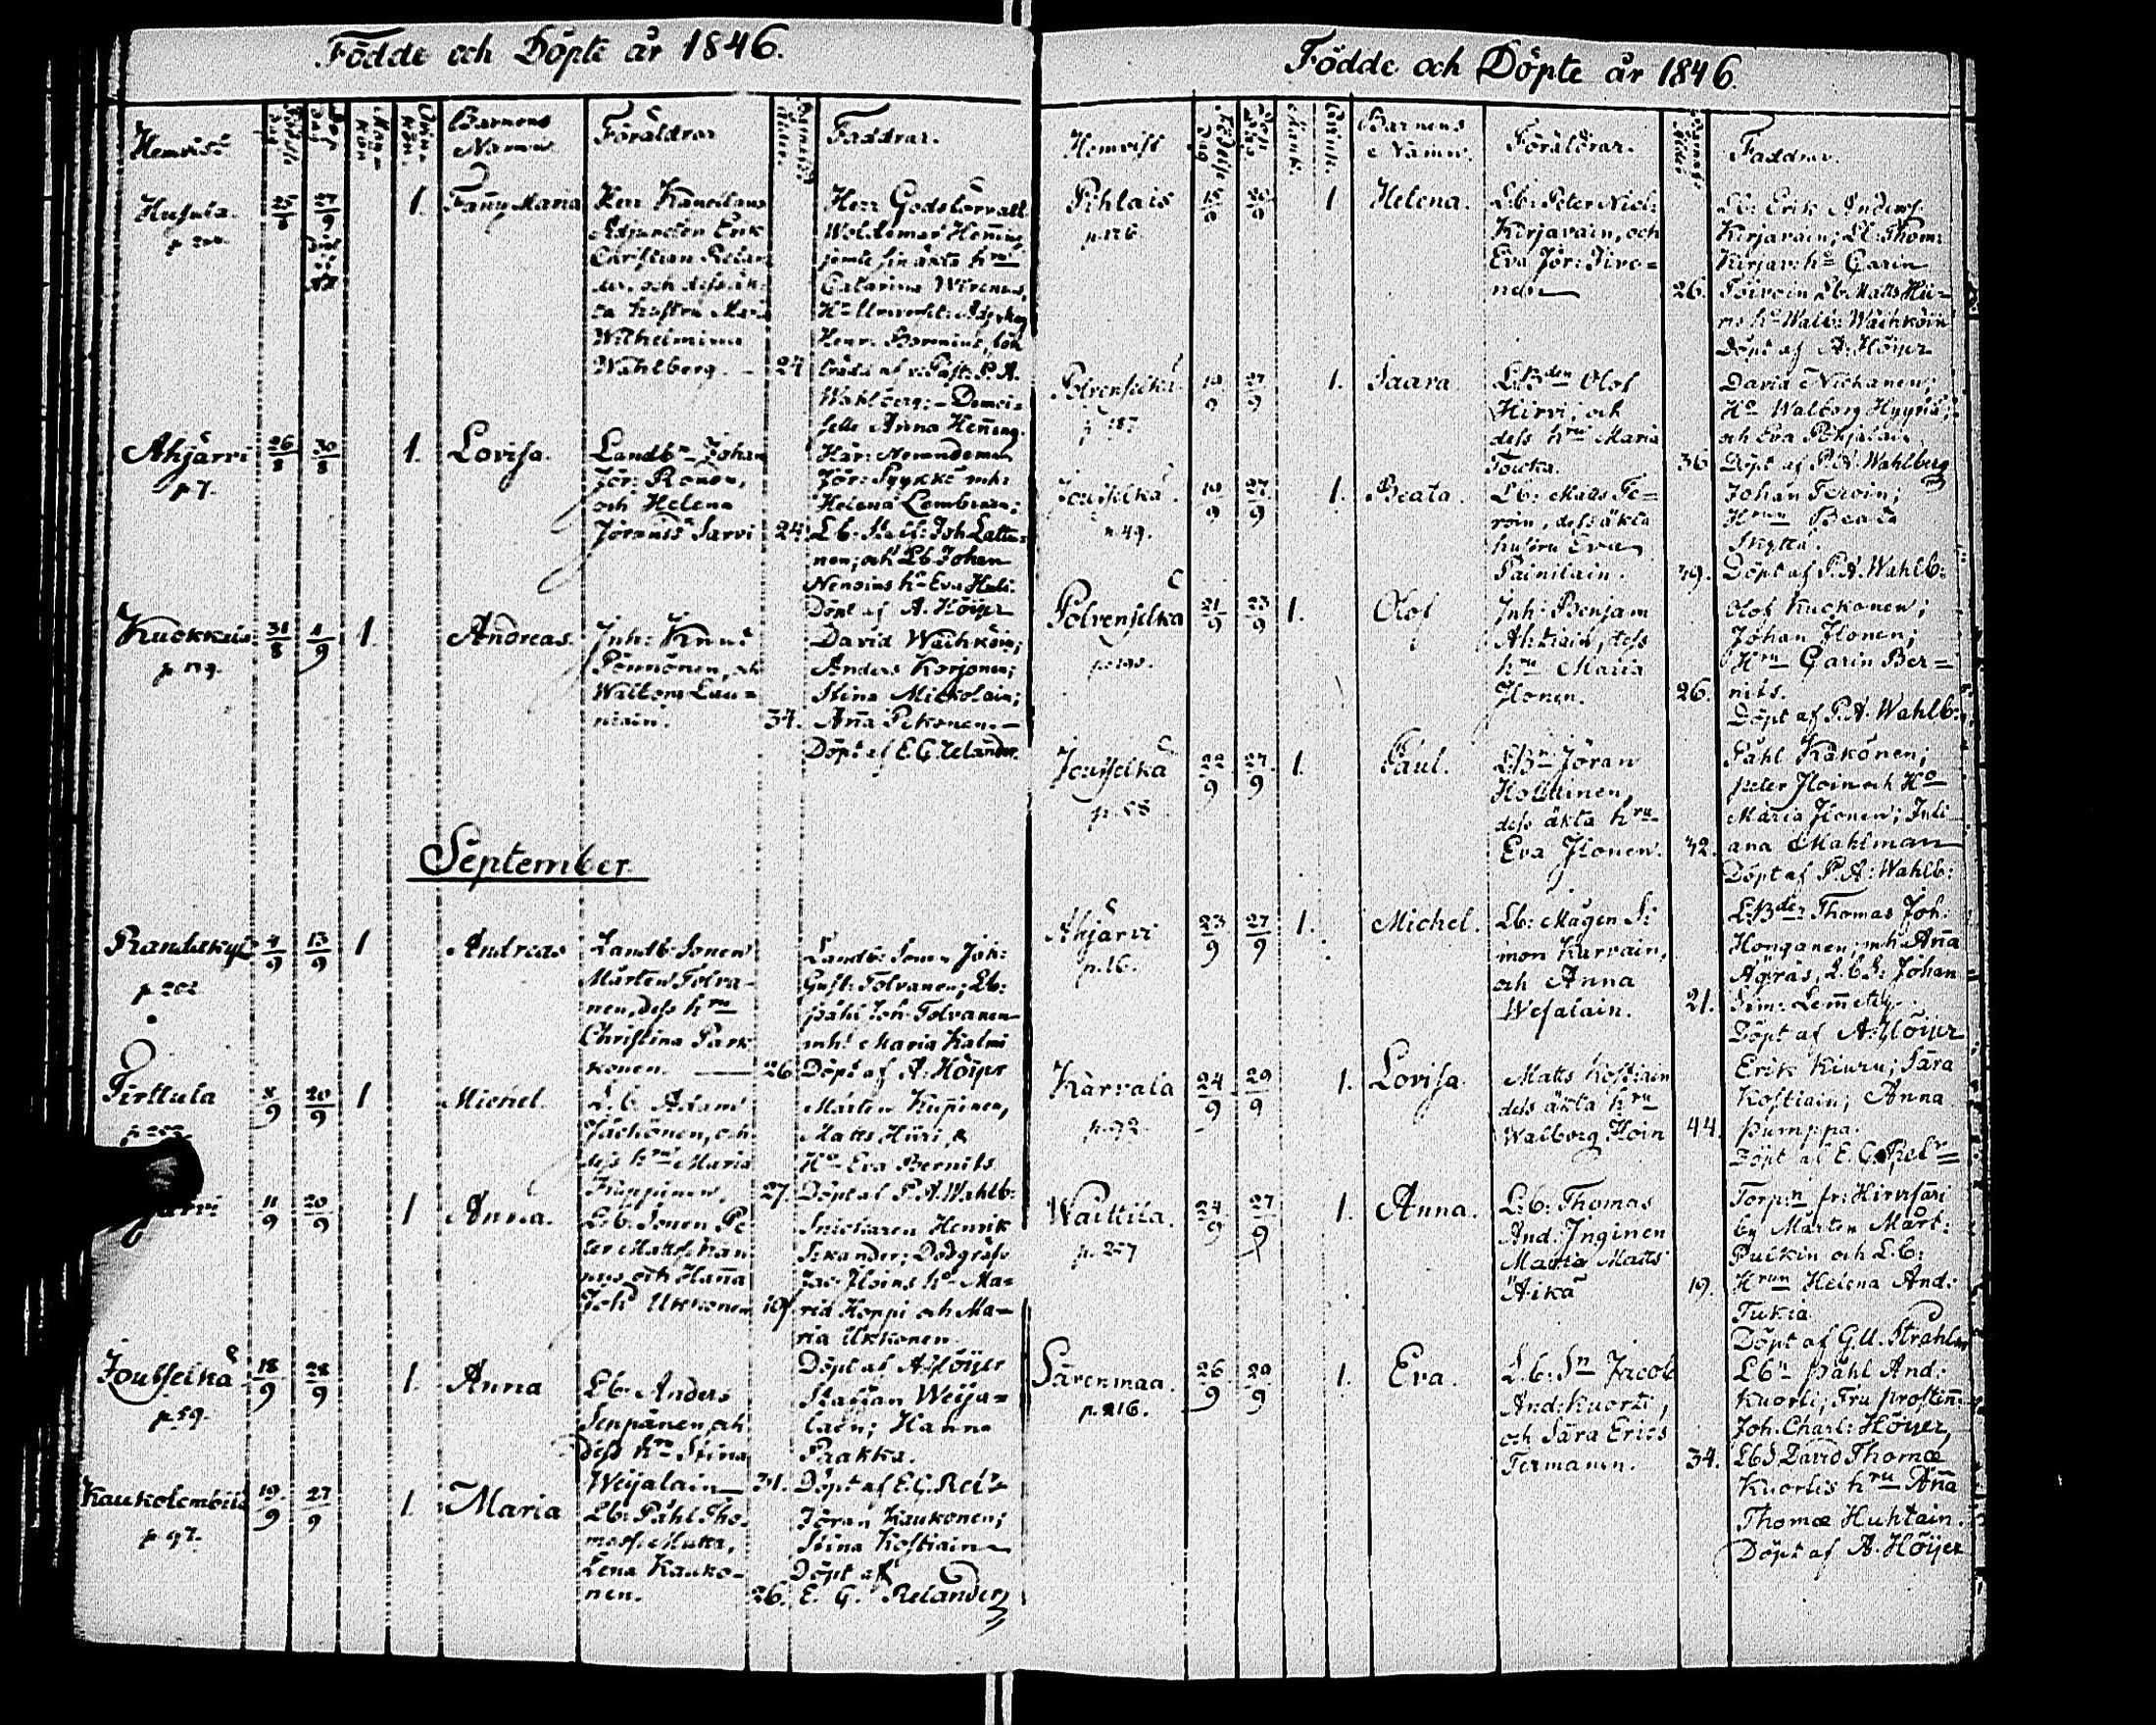 Födde och Döpte år 1846.
Hemvist
Födelse dag
Dop dag
Mankön
Qvinkön
Barnens Namn
Föräldrar
Moderns ålder
Faddrar.
Husula.
25/8
27/9
1.
Fanny Maria
Herr Kancellans
Adjuncten Erik
Christian Relan
der, och dess äk
ta hustru Mari
Wilhelmina
Wahlberg. 24
Herr Godsförvalt
Woldemar Hemming
jemte sin äkta hru
Catarina Wirenius,
Henr. Borenius, 
Wahlberg; Demoi=
selle Anna Henning.
Ahjärvi
p 7.
26/8
30/8
1.
Lovisa.
Landbn Johan
Jör: Ronen,
och Helena
Jöransd Sarvi 24.
Här: Nemndeman
Jör: Pyykkö mh:
Helena Lembiäin;
nen, och Lb Johan
Nenoins ha Eva Huli.
Döpt af A. Höijer
Kuckkus
p 179.
31/8
4/9
1.
Andreas.
Inh: Knut
Pönnönen, och
Walborg Lau=
niain. 34.
David Waihköin;
Anders Korjonen;
Stina Mickolain;
Anna Pekonen.—
Döpt af E. G. Relander.
September
Randaskylä
p 202
4/9
13/9
1
Andreas
Landb Sonen
Mårten Tolva-
nen, dess hru
Christina Park
konen. 26
Landb: Sonen Joh:
Gust: Tolvanen; Lb:
påhl Joh Tolvanen
mh: Maria Kalmi
Döpt af A. Höijer
Pirttula
8/9
20/9
1
Michel.
L.b. Adam
Jäckönen, och
dess hru Maria
27.
Mårten Kupinen,
Matts Hiiri, &
Ha Eva Bernits
Döpt af P. A. Wahlb:
järvi
11/9
20/9
1
Anna.
L.b. Sonen Pe
ter Matts. Kan
nus och Hanna
Joh Ukkonen 19
Snickaren Henrik
Sikander; Dödgräfv
Jac Iloins ha Ma=
ria Hoppi och Ma=
ria Ukkonen
Döpt af A. Höijer
Joutselkä
p 59.
18/9
28/9
1.
Anna
Lb: Anders
Seppänen och
dess hru Stina
Weijalain 31.
Staffan Weija=
lain; Hanna
Pakka.
Döpt af E. G. Relr
Kaukolembälä
p 97.
19/9
27/9
1.
Maria
Lb: Påhl Tho-
mass. Mutta,
Lena Kauko-
nen. 26.
Jöran Kaukonen;
Stina Kostiain
Döpt af
E. G. Relander
Födde och Döpte år 1846.
Hemvist
Födelse Dag
Barnens Namn.
Föräldrar.
Faddrar.
Pihlais
p. 176
1
Helena.
Lb: Peter Niel:
Kirjavain, och
Eva Jör: Siro=
nen 26.
Lb: Erik Anders
Kirjavain; Lb: Thom:
Kirjav: ha Carin
Toivoin Lb. Matts Hii=
ris ha Walb: Waihköin
Döpt af A. Höijer
Polvenselkä
p 187
19/9
27/9
1.
Saara
L.Bden Olof
Hirvi, och
dess hru Maria
Towka. 36
David Nickanen;
Ha Walborg Hyyriä;
och Eva Pohjalain
Döpt af P. A. Wahlberg
Joutselkä.
p. 49.
19/9
27/9
1.
Beata.
Lb: Matts Te=
roin, dess äkta
hustru Eva
Painilain. 39.
Johan Teroin;
Hrun Beata
Skyttä.
Döpt af P. A. Wahlb:
Polvenselkä
p. 190.
21/9
23/9
1.
Olof
Inh: Benjam
Ahtiain, dess
hru Maria
Ilonen. 26.
Olof Kuckonen;
Johan Ilonen;
Hrun Carin Ber=
nits.
Döpt af P. A. Wahlb:
Joutselkä
p. 58
22/9
27/9
1.
Paul.
L.Bn Jöran
Holttinen,
dess äkta hru
Eva Ilonen. 32.
Påhl Kakonen;
peter Iloin och Ha
Maria Ilonen; Juli
ana Mahlman
Döpt af P. A: Wahlb:
Ahjärvi
p. 16.
23/9
27/9
1.
Michel.
Lb: Mågen Si
mon Karvain,
och Anna
Wesalain. 21.
L.Bden Thomas Joh:
Honganen; mh. Anna
Ägräs, L.b.S. Johan
Sim: Lemmetty.
Döpt af A. Höijer
Kärvala
p. 92.
24/9
29/9
1.
Lovisa
Matts Kostiain
dess äkta hru
Walborg Hoin 44.
Erik Kiuru; Sara
Kostiain; Anna
Pumppa.
Döpt af E. G. Relr
Waittila.
p. 257
24/9
27/9
1.
Anna.
L.b: Thomas
And. Inginen
Maria Matts
Aika 19.
Torp:n fr: Hirvisari
by Mårten Mårt:
Pulkin och L.b:
Hrun Helena And:
Tukia
Döpt af G. U. Strahlm
Särenmaa.
p. 216.
26/9
29/9
1.
Eva.
L.b: Sn Jacob
And: Kuorti,
och Sara Erics
Termanen. 34.
Lbn påhl And:
Kuorti; Fru prostinn
Joh. Charl: Höijer,
LbS David Thomæ
Kuortis hru Anna
Thomæ Huhtain.
Döpt af A. Höijer